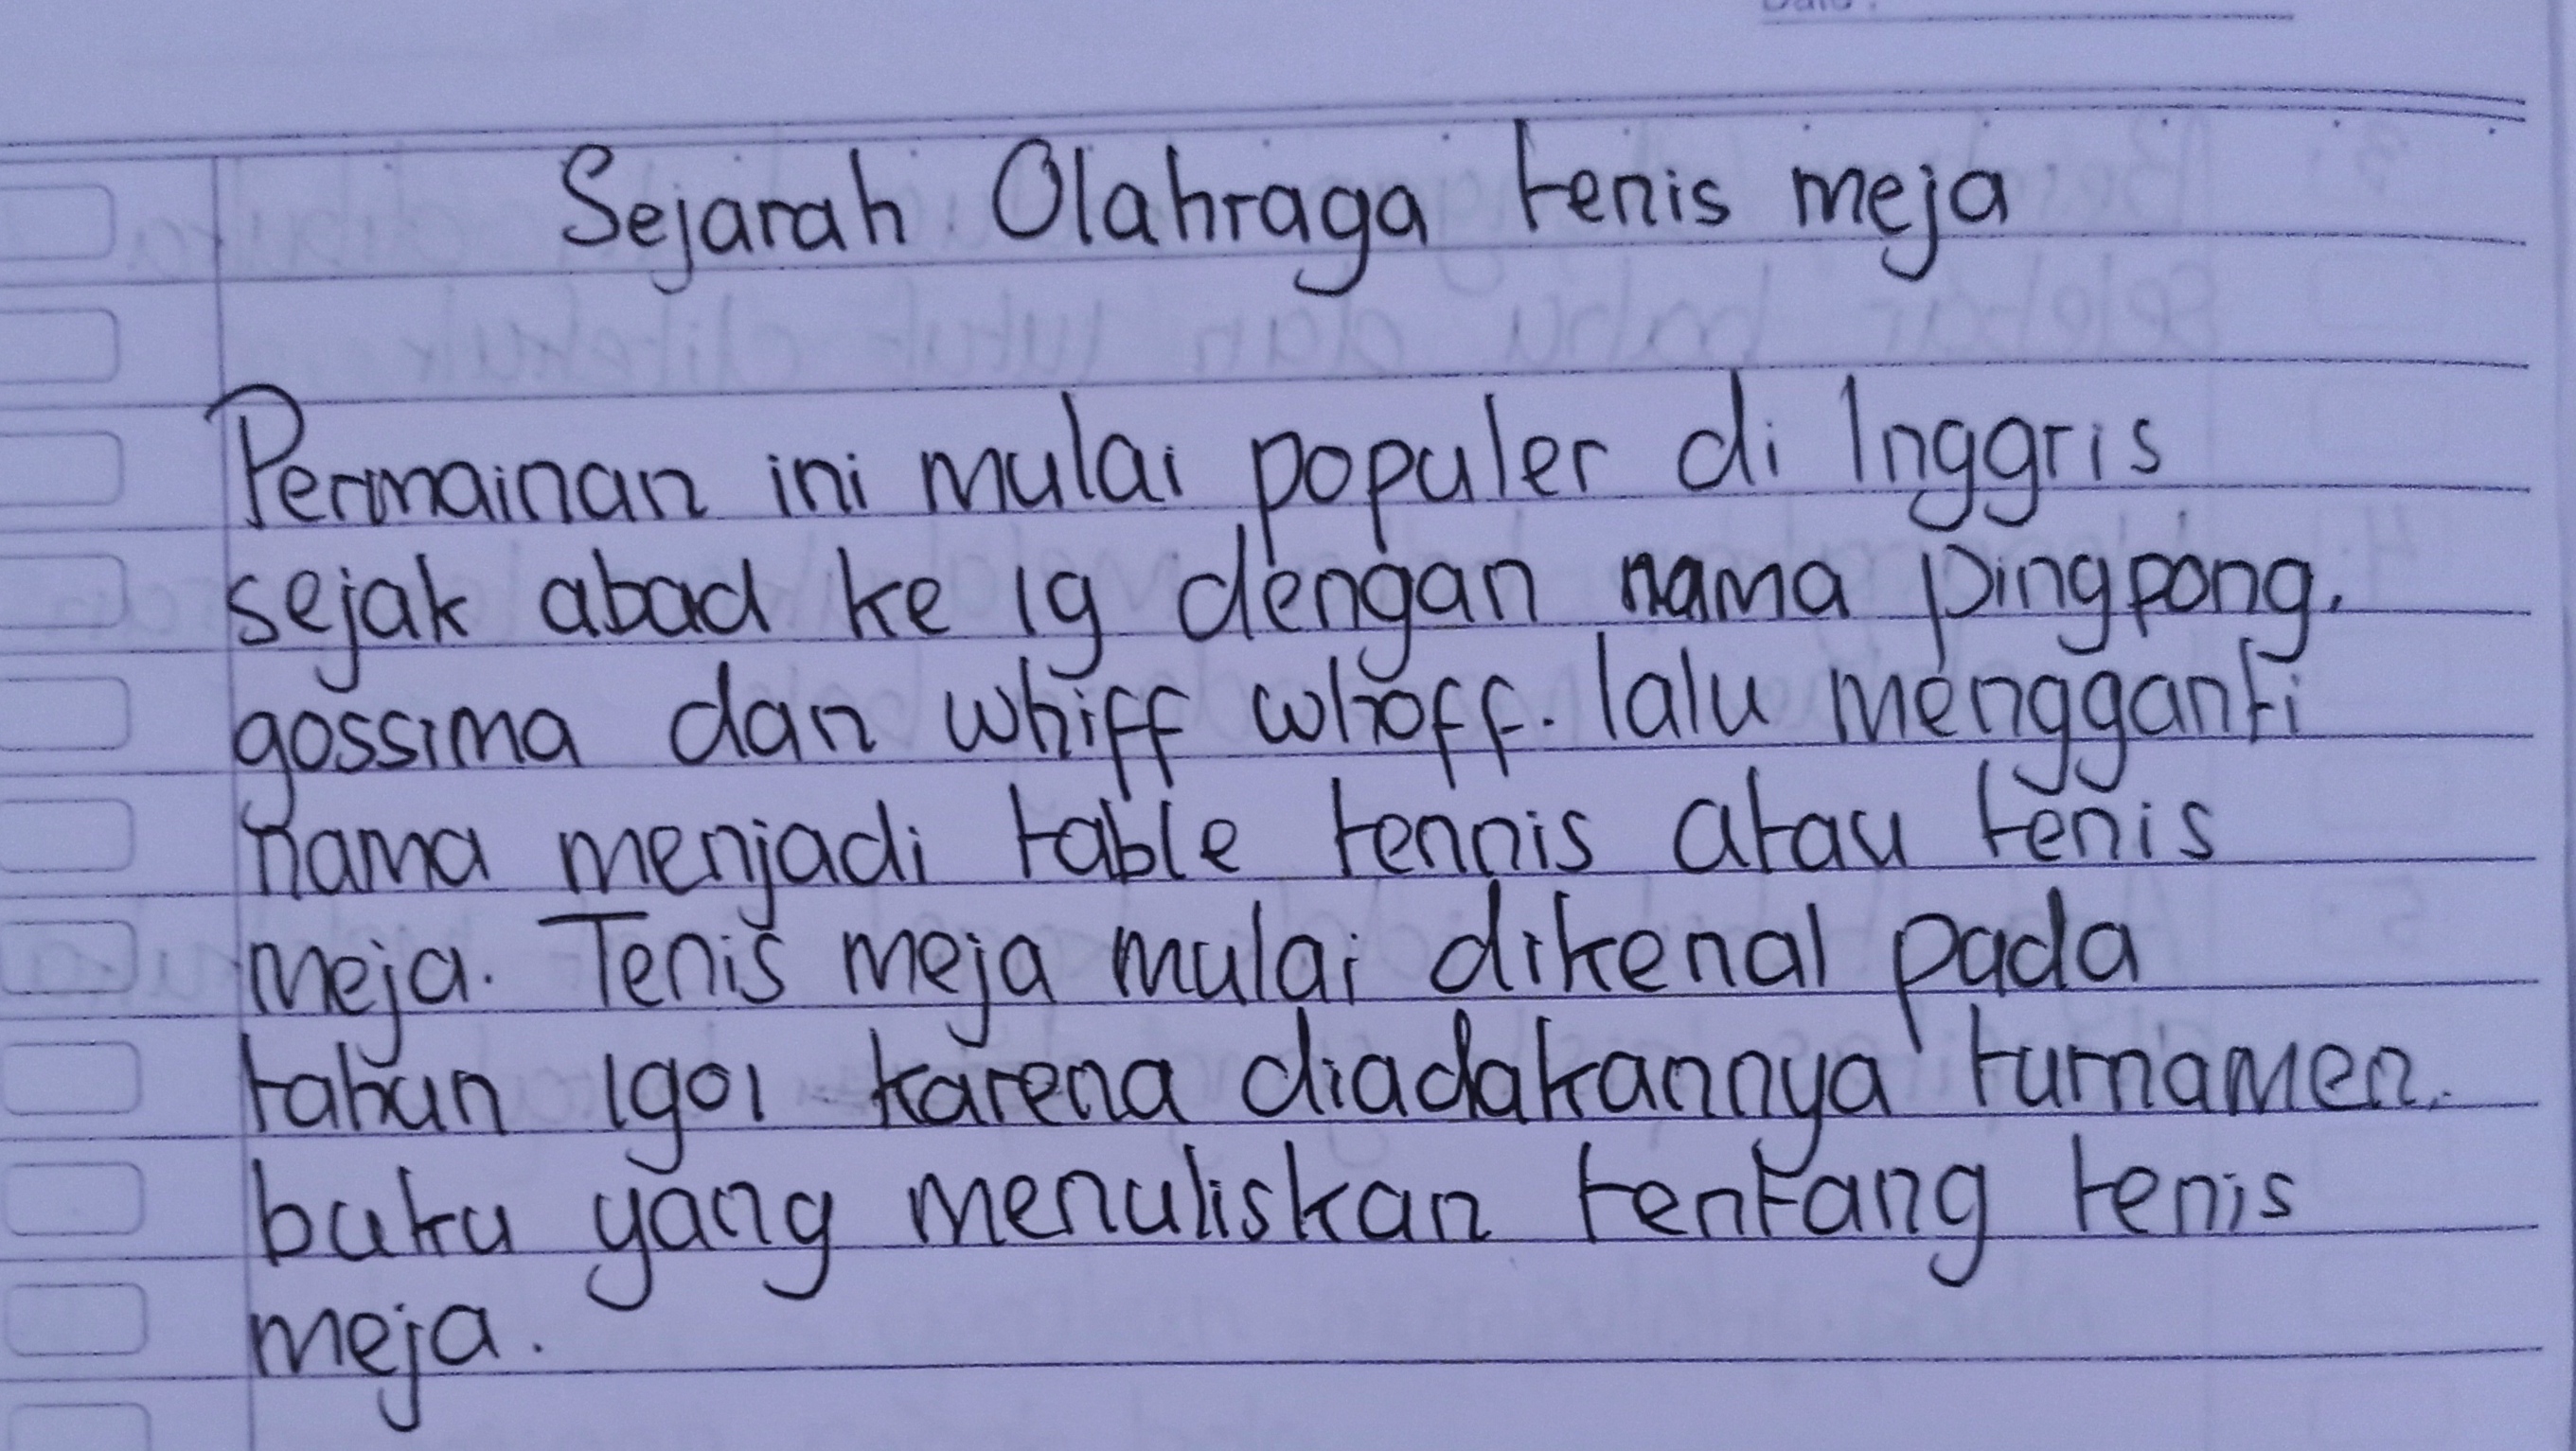 Sejarah Olahraga tenis meja
Permainan ini mulai populer di Inggris
sejak abad ke 19 dengan nama pingpong,
gossima dan whiff whoff. lalu mengganti
nama menjadi table tennis atau tenis
meja. Tenis meja mulai dikenal pada
tahun 1901 karena diadakannya turnamen.
buku yang menuliskan tentang tenis
meja.